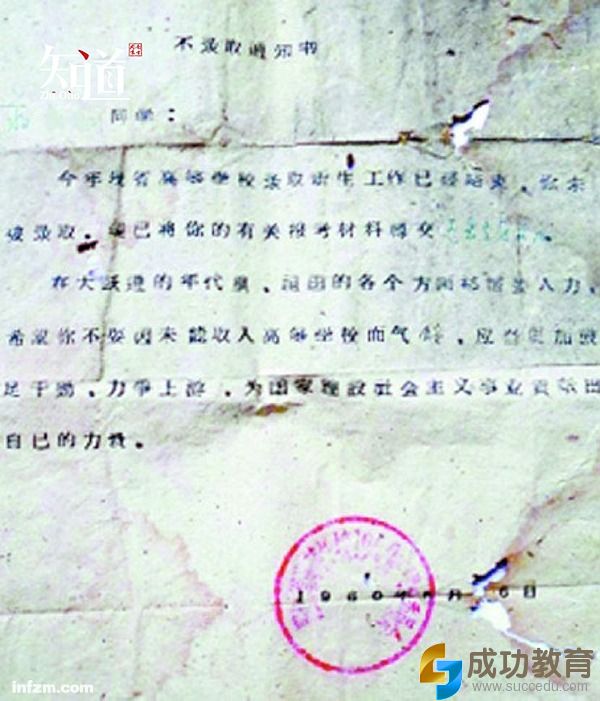 知道
ZhiDao
不录取通知书
同学：
今年我省高等学校录取新生工作已经结束，你未
被录取。已将你的有关报考材料转交
在大跃进的年代里，祖国的各个方面都需要人力，
希望你不要因未能收入高等学校而气，应当更加鼓
足干劲，力争上游，为国家建设社会主义事业贡献出
自己的力量。
1960年月6日
infzm.com
成功教育
www.succedu.com